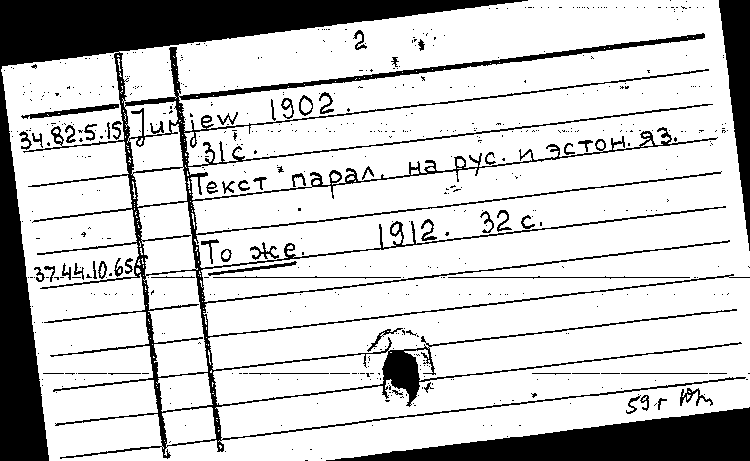 2
34.82:5.15 Jurjew, 1902.
31 с.
Текст парал. на рус. и эстон. яз.
37.44.10.656 То же. 1912. 32 с.
59 г